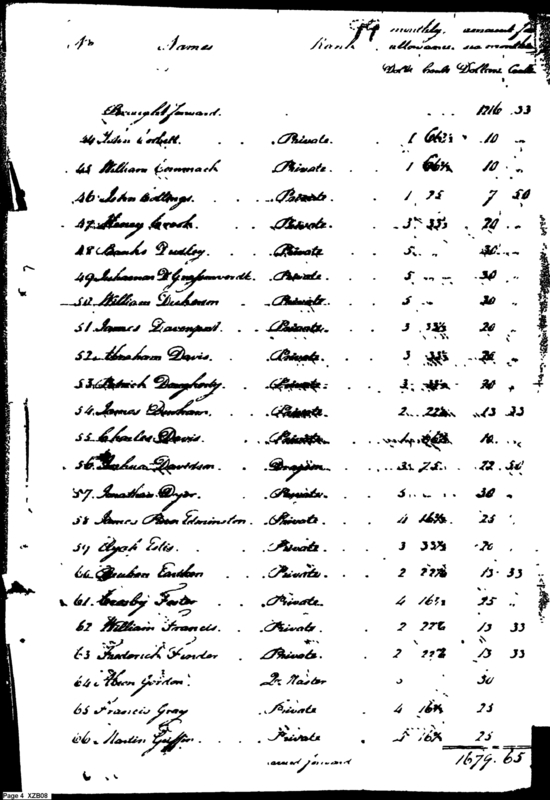 No Names Rank monthly allowance amount for six months
Dolls Cents Dollars Cents
Brought forward. 1216 33
44 Corbett Private 1 66⅔ 10 "
45 William Commach Private 1 66⅔ 10 "
46 John Collings Private 1 25 7 50
47 Henry Crook Private 3 33⅓ 20 "
48 Banks Dudley Private 5 " 30 "
49 Private 5 " 30 "
50 William Dickerson Private 5 " 30 "
51 James Davenport Private 3 33⅓ 20 "
52 Abraham Davis Private 3 33⅓ 20 "
53 Patrick Daugherty Private 3 33⅓ 20 "
54 James Private 2 22⅔ 13 33
55 Charles Davis Private 1 66⅔ 10 "
56 Joshua Davidson Dragoon 3 75 22 50
57 Jonathan Dyer Private 5 " 30 "
58 James Edminston Private 4 16⅔ 25 "
59 Private 3 33⅓ 20 "
60 Reuben Private 2 22⅔ 13 33
61 Crosby Foster Private 4 16⅔ 25 "
62 William Francis Private 2 22⅔ 13 33
63 Frederick Private 2 22⅔ 13 33
64 Gordon Qr Master 5 30
65 Francis Gray Private 4 16⅔ 25
66 Martin Griffin Private 5 16⅔ 25
carried forward 1679.65
Page 4 XZB08